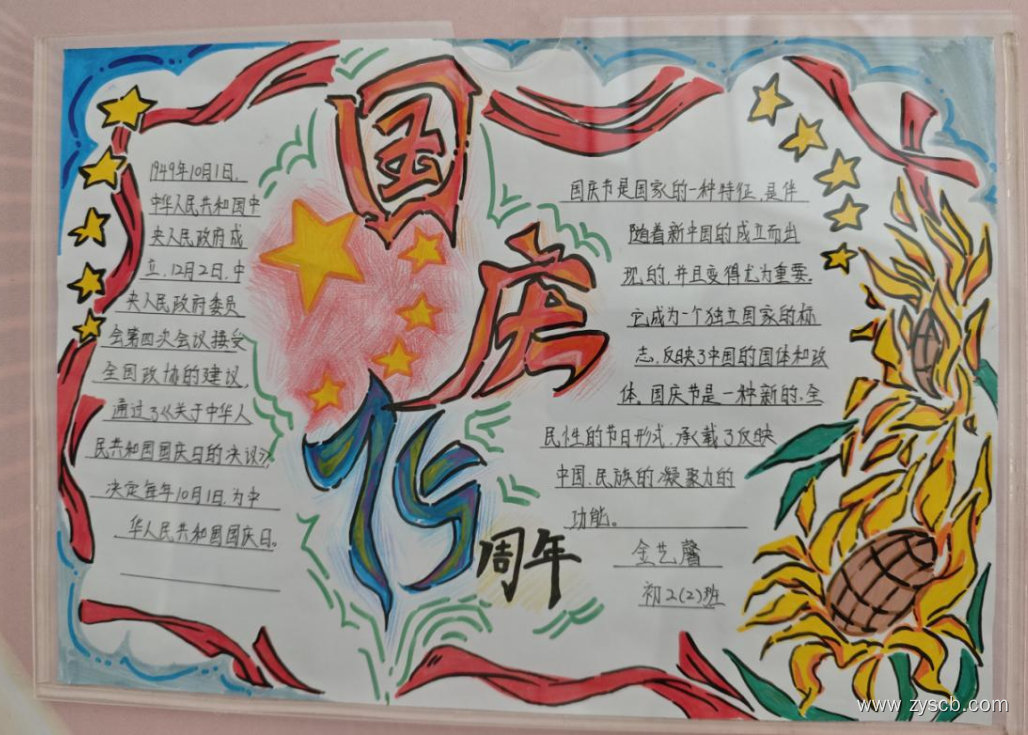 国庆
75
周年
1949年10月1日,
中华人民共和国中
央人民政府成
立,12月2日,中
央人民政府委员
会第四次会议接受
全国政协的建议,
通过了《关于中华人
民共和国国庆日的决议》,
决定每年10月1日,为中
华人民共和国国庆日。
国庆节是国家的一种特征,是伴
随着新中国的成立而出
现的,并且变得尤为重要.
它成为一个独立国家的标
志,反映了中国的国体和政
体.国庆节是一种新的.全
民性的节日形式,承载了反映
中国.民族的凝聚力的
功能。
金艺馨
初2(2)班
www.zyscb.com